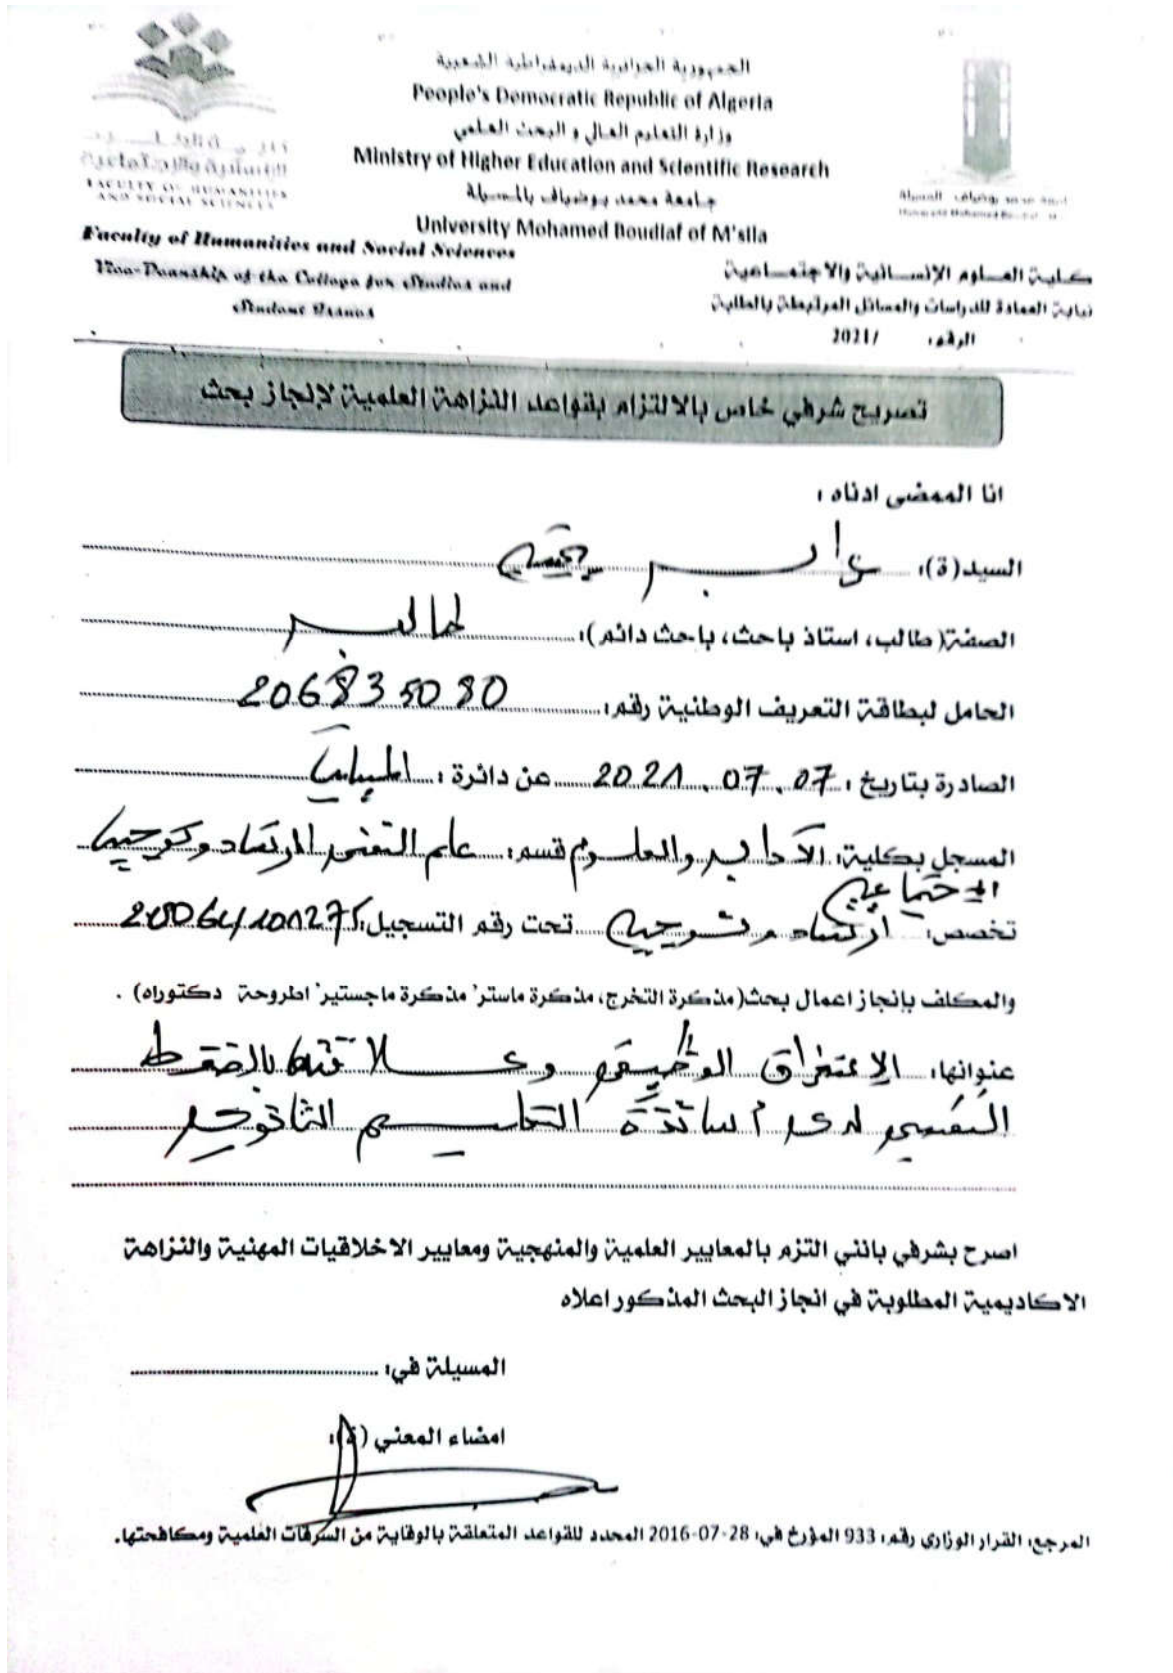 الجمهورية الجزائرية الديمقراطية الشعبية
People's Democratic Republic of Algeria
وزارة التعليم العالي و البحث العلمي
Ministry of Higher Education and Scientific Research
جامعة محمد بوضياف بالمسيلة
University Mohamed Boudiaf of M'sila
الإنسانية والاجتماعية
FACULTY OF HUMANITIES
AND SOCIAL SCIENCES
Faculty of Humanities and Social Sciences
Vice-Deanship of the College for Studies and
Student Issues
كلية العلوم الإنسانية والاجتماعية
نيابة العمادة للدراسات والمسائل المرتبطة بالطلبة
الرقم: /2021
تصريح شرفي خاص بالالتزام بقواعد النزاهة العلمية لإنجاز بحث
انا الممضى ادناه :
السيد(ة):
الصفة( طالب، استاذ باحث، باحث دائم ): طالب
الحامل لبطاقة التعريف الوطنية رقم: 206835080
الصادرة بتاريخ : 2021.07.07 عن دائرة : المسيلة
المسجل بكلية: الآداب والعلوم قسم: علم النفس
الاجتماعية
تخصص: تحت رقم التسجيل:
والمكلف بإنجاز اعمال بحث(مذكرة التخرج، مذكرة ماستر' مذكرة ماجستير' اطروحة دكتوراه) .
عنوانها: الاحتراق الوظيفي وعلاقته بالضغط
النفسي لدى أساتذة التعليم الثانوي
اصرح بشرفي بانني التزم بالمعايير العلمية والمنهجية ومعايير الاخلاقيات المهنية والنزاهة
الاكاديمية المطلوبة في انجاز البحث المذكور اعلاه
المسيلة في:
امضاء المعني (ة):
المرجع: القرار الوزاري رقم: 933 المؤرخ في: 28-07-2016 المحدد للقواعد المتعلقة بالوقاية من السرقات العلمية ومكافحتها.